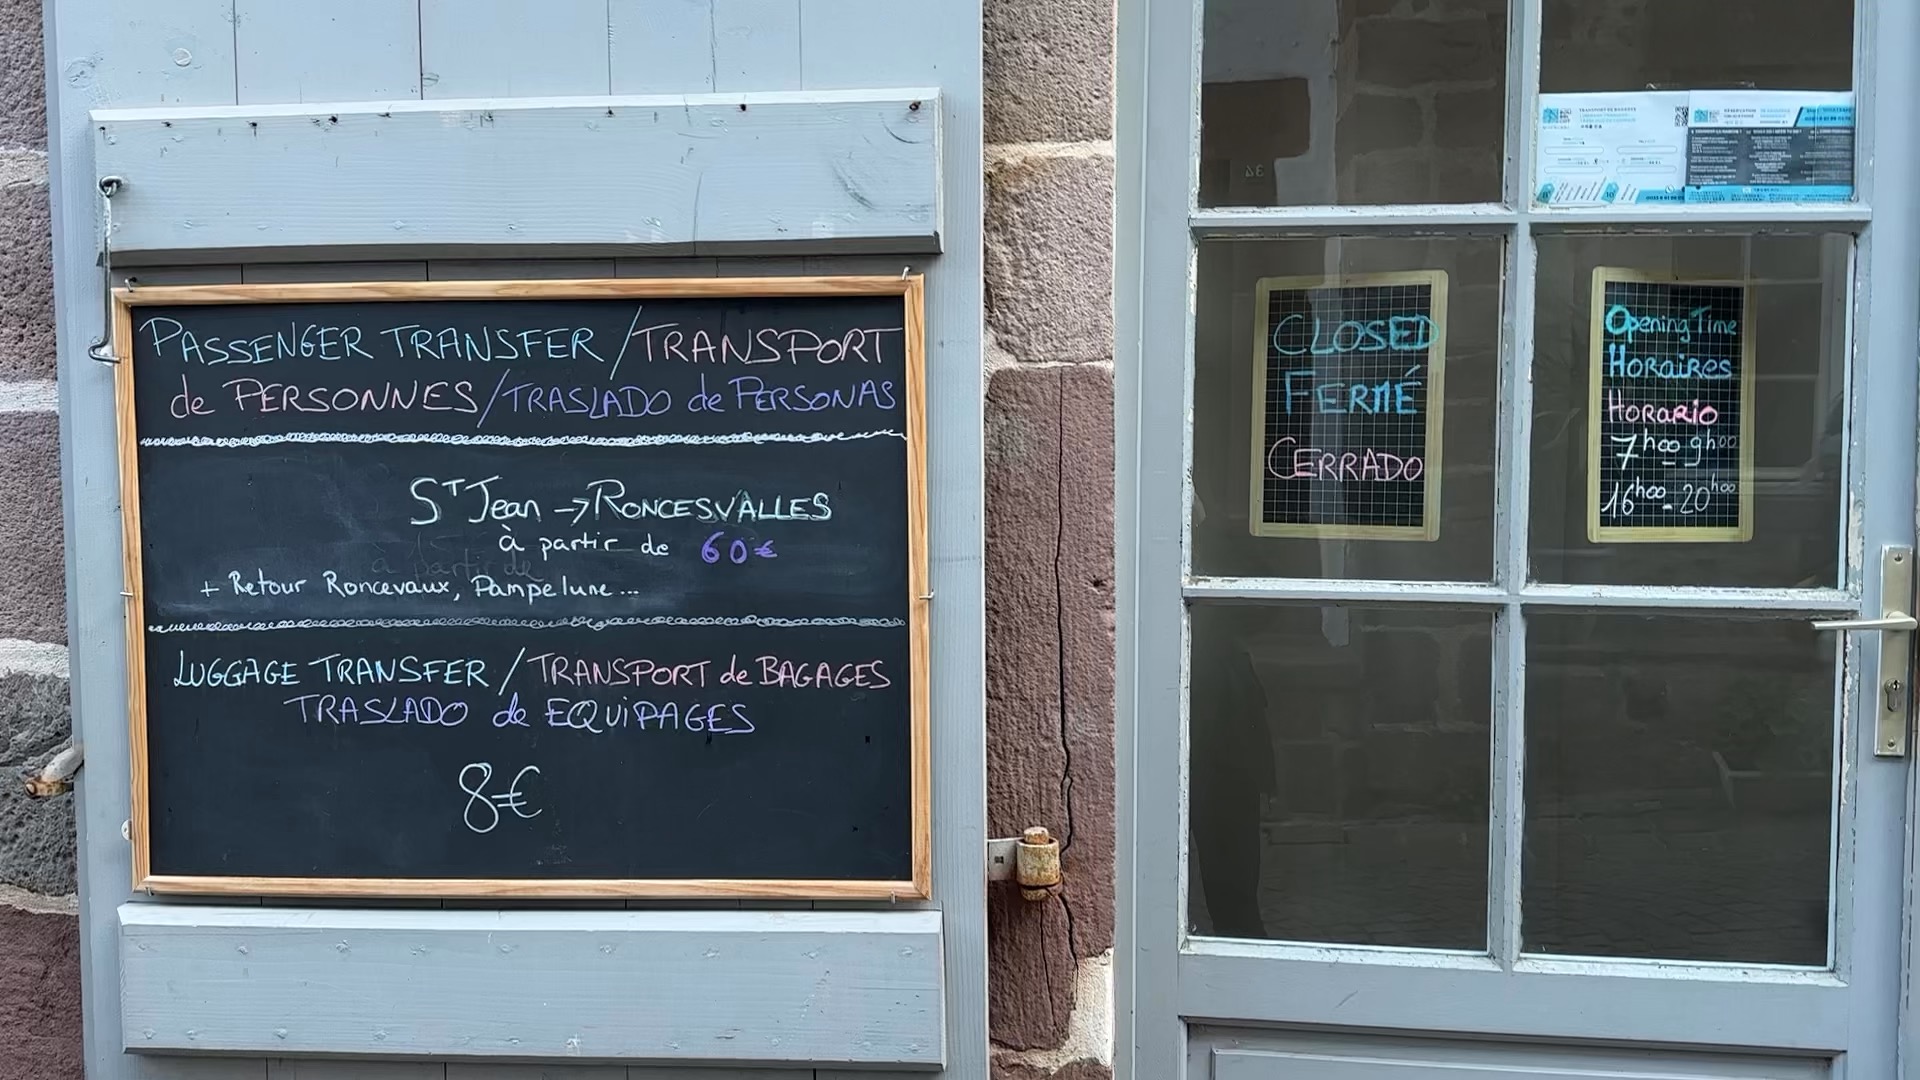 PASSENGER TRANSFER / TRANSPORT
de PERSONNES / TRASLADO de PERSONAS
ST Jean → RONCESVALLES
à partir de 60€
à partir de
+ Retour Roncevaux, Pampelune ...
LUGGAGE TRANSFER / TRANSPORT de BAGAGES
TRASLADO de EQUiPAGES
8€
TRANSPORT DE BAGAGES
CLOSED
FERMÉ
CERRADO
Opening Time
HORAiRES
HORARiO
7h00 9h00
16h00 - 20h00